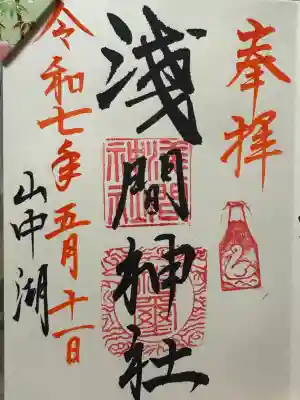 奉拝
浅間神社
令和七年五月十一日
山中湖